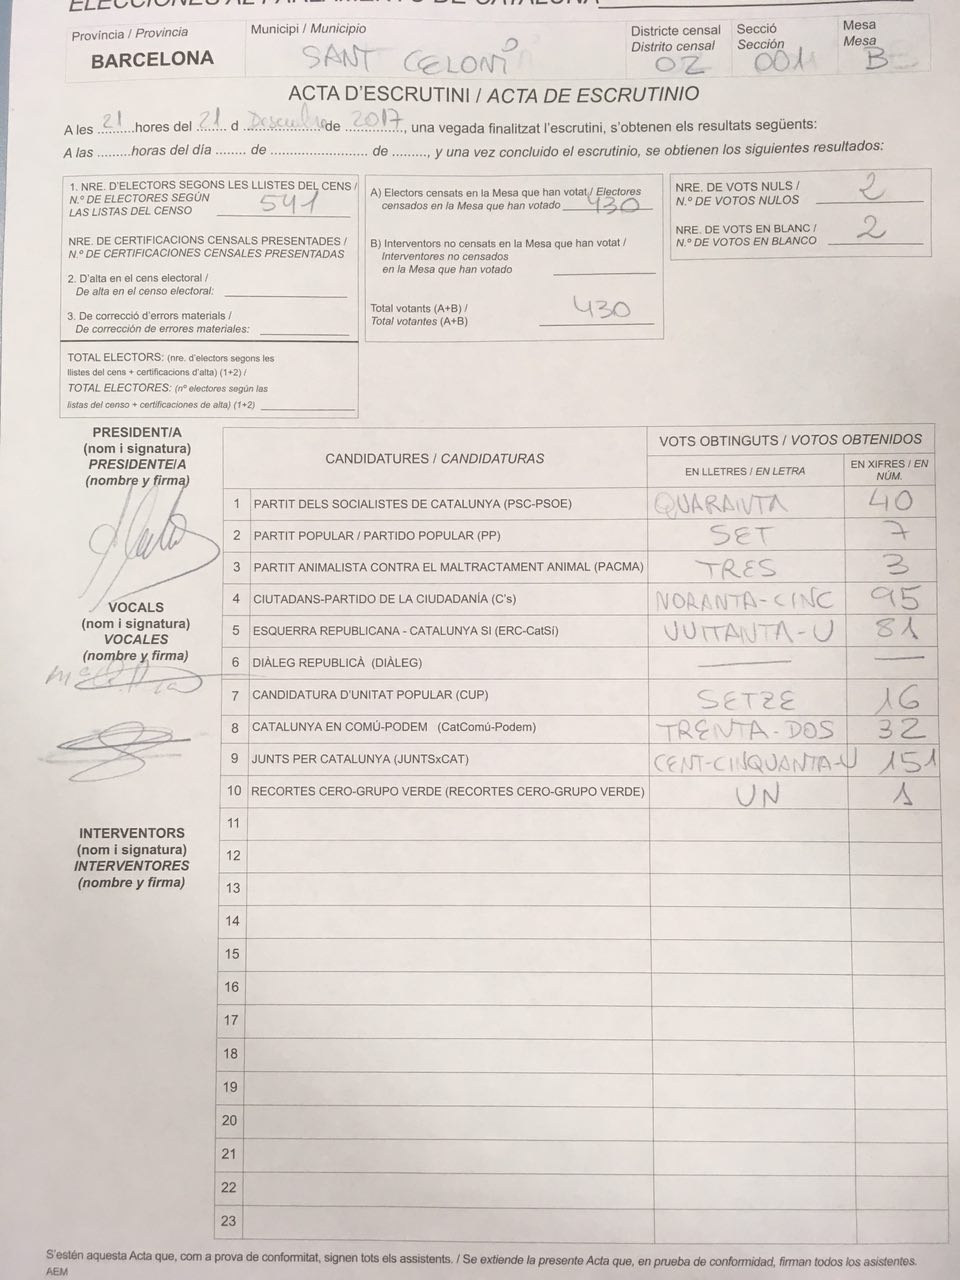 ELECCIONES AL PARLAMENTO DE CATALUÑA
Província / Provincia
BARCELONA
Municipi / Municipio
SANT CELONI
Districte censal
Distrito censal
02
Secció
Sección
001
Mesa
Mesa
B
ACTA D'ESCRUTINI / ACTA DE ESCRUTINIO
A les 21 hores del 21 d Desembre de 2017, una vegada finalitzat l'escrutini, s'obtenen els resultats següents:
A las .........horas del día ....... de ....................... de ........, y una vez concluido el escrutinio, se obtienen los siguientes resultados:
1. NRE. D'ELECTORS SEGONS LES LLISTES DEL CENS /
N.º DE ELECTORES SEGÚN
LAS LISTAS DEL CENSO 541
NRE. DE CERTIFICACIONS CENSALS PRESENTADES /
N.º DE CERTIFICACIONES CENSALES PRESENTADAS
2. D'alta en el cens electoral /
De alta en el censo electoral:
3. De correcció d'errors materials /
De corrección de errores materiales:
TOTAL ELECTORS: (nre. d'electors segons les
llistes del cens + certificacions d'alta) (1+2) /
TOTAL ELECTORES: (nº electores según las
listas del censo + certificaciones de alta) (1+2)
A) Electors censats en la Mesa que han votat / Electores
censados en la Mesa que han votado 430
B) Interventors no censats en la Mesa que han votat /
Interventores no censados
en la Mesa que han votado
Total votants (A+B) /
Total votantes (A+B) 430
NRE. DE VOTS NULS /
N.º DE VOTOS NULOS 2
NRE. DE VOTS EN BLANC /
N.º DE VOTOS EN BLANCO 2
PRESIDENT/A
(nom i signatura)
PRESIDENTE/A
(nombre y firma)
VOCALS
(nom i signatura)
VOCALES
(nombre y firma)
INTERVENTORS
(nom i signatura)
INTERVENTORES
(nombre y firma)
CANDIDATURES / CANDIDATURAS
VOTS OBTINGUTS / VOTOS OBTENIDOS
EN LLETRES / EN LETRA
EN XIFRES / EN
NÚM.
1 PARTIT DELS SOCIALISTES DE CATALUNYA (PSC-PSOE) QUARANTA 40
2 PARTIT POPULAR / PARTIDO POPULAR (PP) SET 7
3 PARTIT ANIMALISTA CONTRA EL MALTRACTAMENT ANIMAL (PACMA) TRES 3
4 CIUTADANS-PARTIDO DE LA CIUDADANÍA (C's) NORANTA-CINC 95
5 ESQUERRA REPUBLICANA - CATALUNYA SI (ERC-CatSí) VUITANTA-U 81
6 DIÀLEG REPUBLICÀ (DIÀLEG) — —
7 CANDIDATURA D'UNITAT POPULAR (CUP) SETZE 16
8 CATALUNYA EN COMÚ-PODEM (CatComú-Podem) TRENTA-DOS 32
9 JUNTS PER CATALUNYA (JUNTSxCAT) CENT-CINQUANTA-U 151
10 RECORTES CERO-GRUPO VERDE (RECORTES CERO-GRUPO VERDE) UN 1
11
12
13
14
15
16
17
18
19
20
21
22
23
S'estén aquesta Acta que, com a prova de conformitat, signen tots els assistents. / Se extiende la presente Acta que, en prueba de conformidad, firman todos los asistentes.
AEM